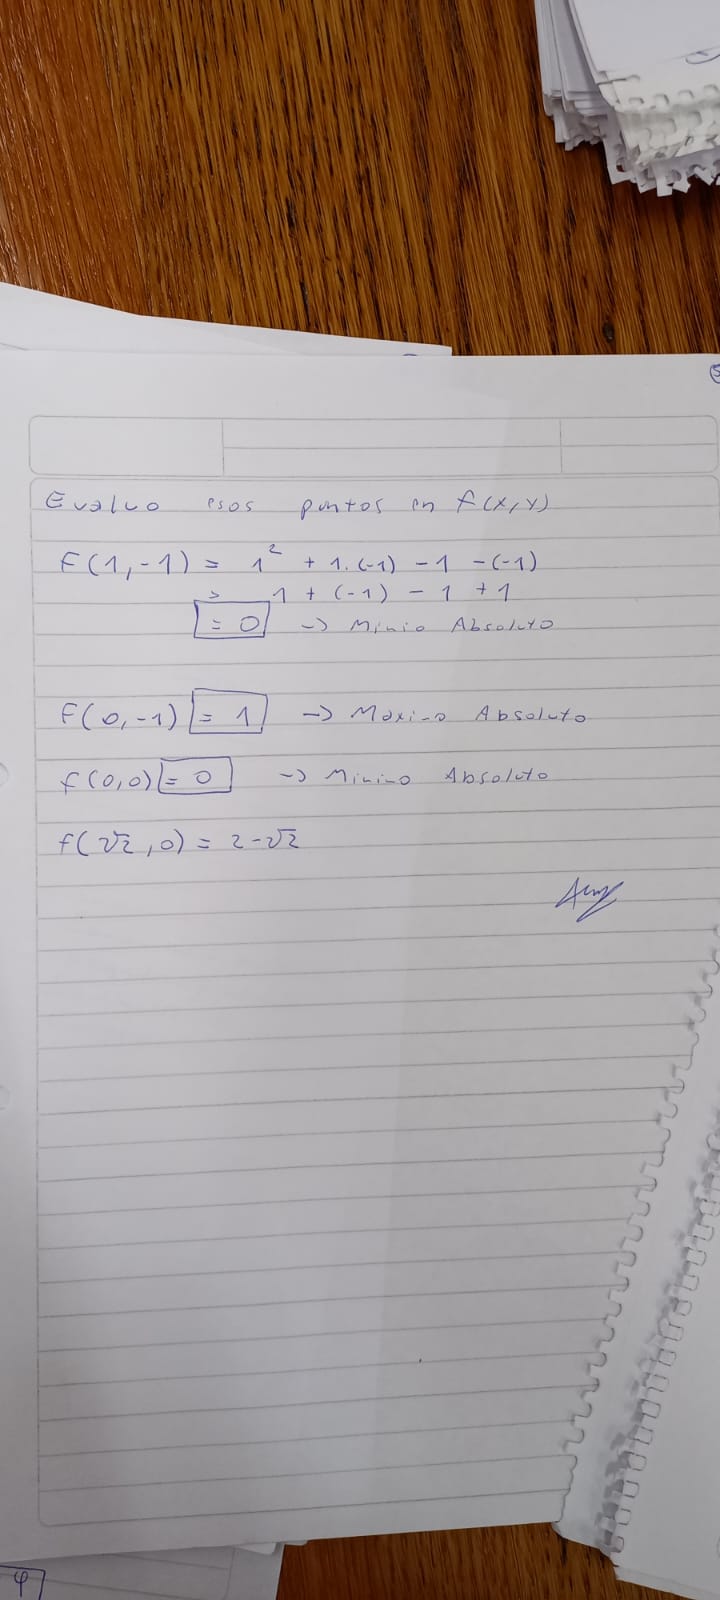 5
Evaluo esos puntos en f(x,y)
F(1,-1) = 1² + 1.(-1) - 1 - (-1)
= 1 + (-1) - 1 + 1
= 0 -> Minio Absoluto
F(0,-1) = 1 -> Maximo Absoluto
f(0,0) = 0 -> Minimo Absoluto
f(√2,0) = 2-√2
4